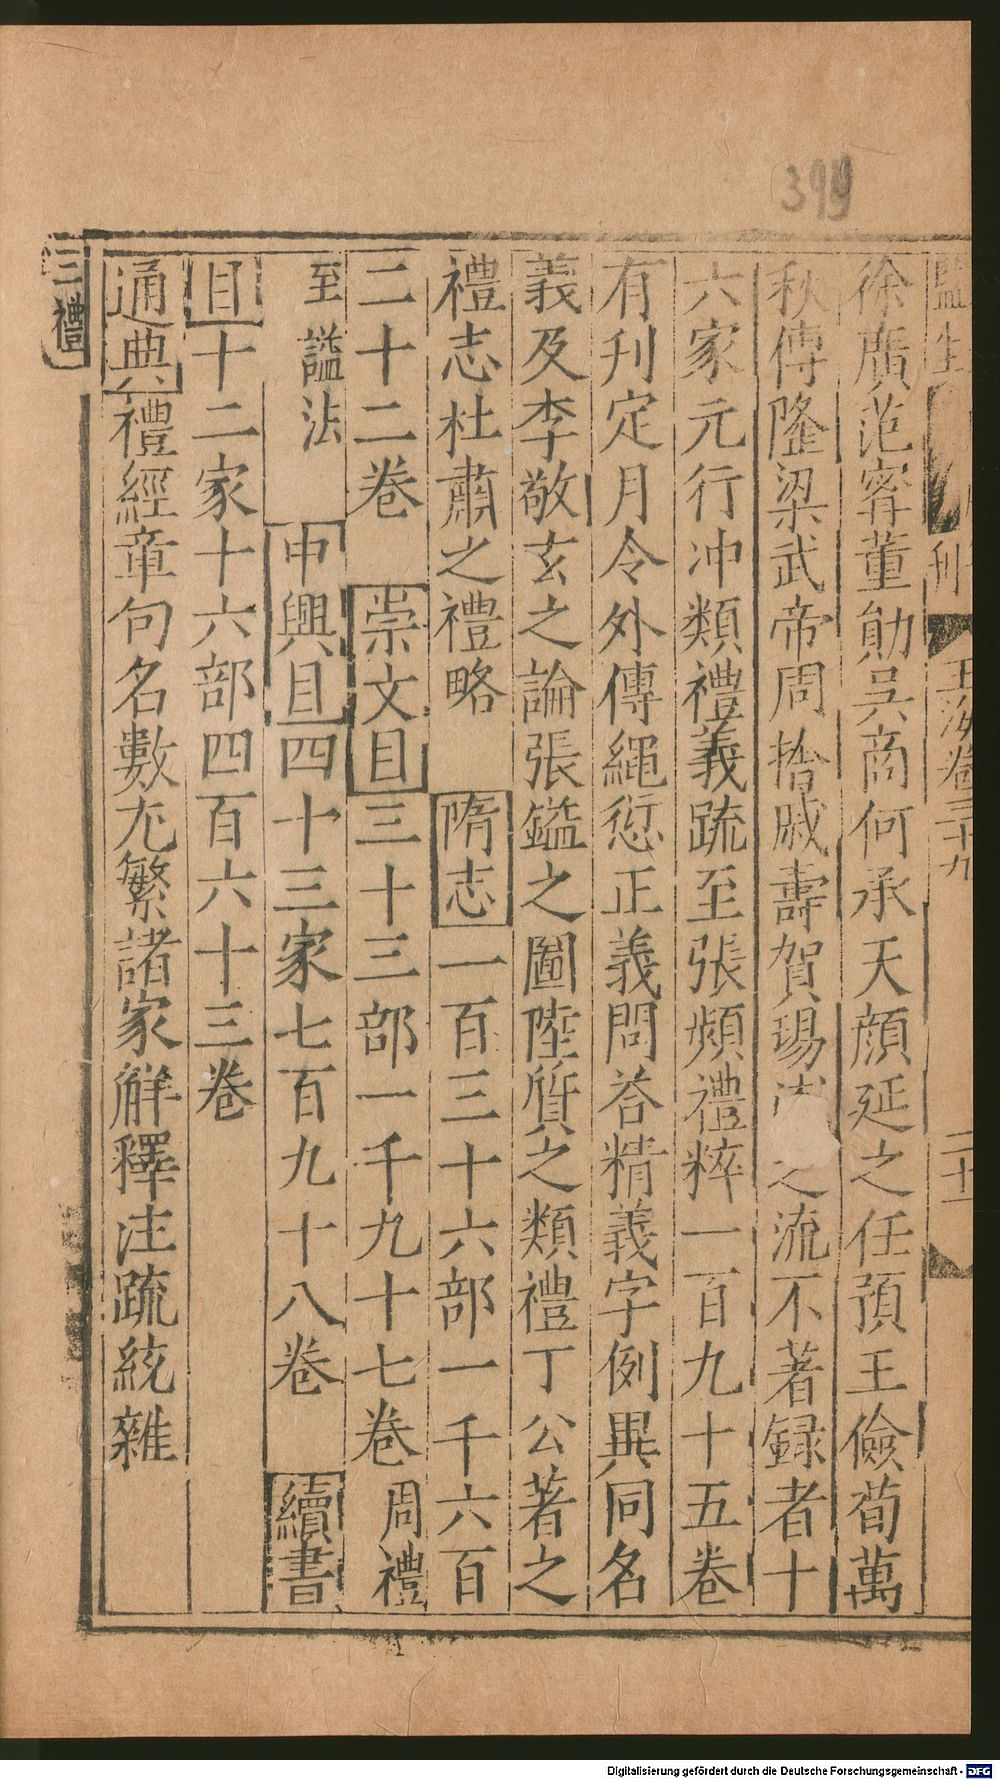 399
監生 刊 玉海卷三十九 二十一
徐廣范寗董勛吳商何承天顔延之任預王儉荀萬
秋傳隆梁武帝周捨戚壽賀瑒 之流不著録者十
六家元行冲類禮義疏至張頻禮粹一百九十五卷
有刊定月令外傳繩愆正義問荅精義字例異同名
義及李敬玄之論張鎰之圖陸質之類禮丁公著之
禮志杜肅之禮略 隋志一百三十六部一千六百
二十二卷 崇文目三十三部一千九十七卷周禮
至諡法 中興目四十三家七百九十八卷 續書
目十二家十六部四百六十三卷
通典禮經章句名數尤繁諸家解釋注疏統雜
三禮
Digitalisierung gefördert durch die Deutsche Forschungsgemeinschaft - DFG